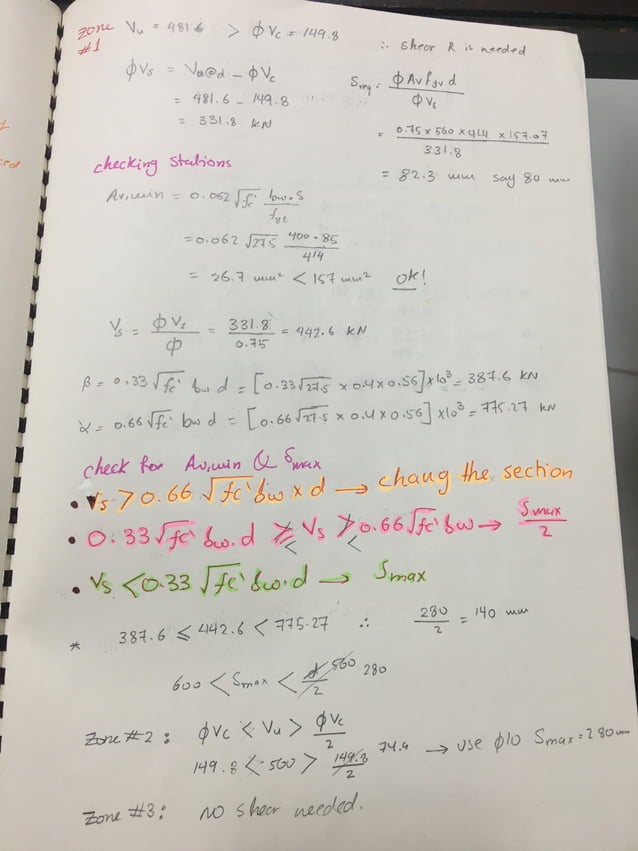 Zone #1
Vu = 481.6 > φVc = 149.8
∴ Shear R is needed
φVs = Vu@d - φVc
= 481.6 - 149.8
= 331.8 kN
Sreq = φ Av fyv d / φ Vs
= 0.75 x 560 x 414 x 157.07 / 331.8
= 82.3 mm say 80 mm
checking Stations
Av,min = 0.062 √fc' bw.S / fyt
= 0.062 √27.5 400 * 85 / 414
= 26.7 mm² < 157 mm² OK!
Vs = φ Vs / φ = 331.8 / 0.75 = 442.6 kN
β = 0.33 √fc' bw d = [0.33 √27.5 x 0.4 x 0.56] x10³ = 387.6 kN
α = 0.66 √fc' bw d = [0.66 √27.5 x 0.4 x 0.56] x10³ = 775.27 kN
check for Av,min & Smax
• Vs > 0.66 √fc' bw x d → chang the section
• 0.33 √fc' bw.d ≤ Vs < 0.66 √fc' bw → Smax / 2
• Vs < 0.33 √fc' bw.d → Smax
* 387.6 ≤ 442.6 < 775.27 ∴ 280 / 2 = 140 mm
600 < Smax < d / 2 560 280
Zone #2 : φVc < Vu > φVc / 2
149.8 < 560 > 149.8 / 2 74.9 → use φ10 Smax = 280 mm
Zone #3 : No shear needed.